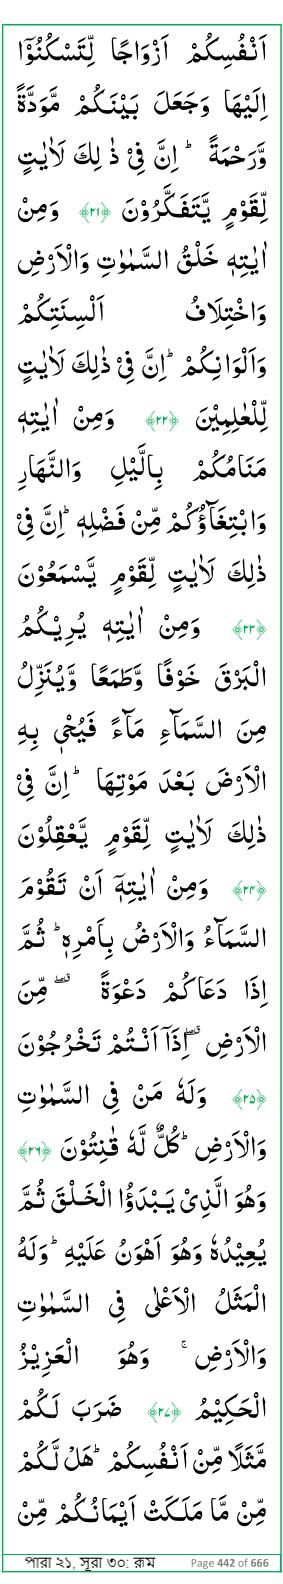 اَنْفُسِكُمْ اَزْوَاجًا لِّتَسْكُنُوْۤا
اِلَيْهَا وَجَعَلَ بَيْنَكُمْ مَّوَدَّةً
وَّرَحْمَةً ؕ اِنَّ فِيْ ذٰ لِكَ لَاٰيٰتٍ
لِّقَوْمٍ يَّتَفَكَّرُوْنَ ﴿۲۱﴾ وَمِنْ
اٰيٰتِهٖ خَلْقُ السَّمٰوٰتِ وَالْاَرْضِ
وَاخْتِلَافُ اَلْسِنَتِكُمْ
وَاَلْوَانِكُمْ ؕ اِنَّ فِيْ ذٰلِكَ لَاٰيٰتٍ
لِّلْعٰلِمِيْنَ ﴿۲۲﴾ وَمِنْ اٰيٰتِهٖ
مَنَامُكُمْ بِالَّيْلِ وَالنَّهَارِ
وَابْتِغَآؤُكُمْ مِّنْ فَضْلِهٖ ؕ اِنَّ فِيْ
ذٰلِكَ لَاٰيٰتٍ لِّقَوْمٍ يَّسْمَعُوْنَ
﴿۲۳﴾ وَمِنْ اٰيٰتِهٖ يُرِيْكُمُ
الْبَرْقَ خَوْفًا وَّطَمَعًا وَّيُنَزِّلُ
مِنَ السَّمَآءِ مَآءً فَيُحْيٖ بِهِ
الْاَرْضَ بَعْدَ مَوْتِهَا ؕ اِنَّ فِيْ
ذٰلِكَ لَاٰيٰتٍ لِّقَوْمٍ يَّعْقِلُوْنَ
﴿۲۴﴾ وَمِنْ اٰيٰتِهٖۤ اَنْ تَقُوْمَ
السَّمَآءُ وَالْاَرْضُ بِاَمْرِهٖ ؕ ثُمَّ
اِذَا دَعَاكُمْ دَعْوَةً ۖۗ مِّنَ
الْاَرْضِ ۖۗ اِذَاۤ اَنْتُمْ تَخْرُجُوْنَ
﴿۲۵﴾ وَلَهٗ مَنْ فِي السَّمٰوٰتِ
وَالْاَرْضِ ؕ كُلٌّ لَّهٗ قٰنِتُوْنَ ﴿۲۶﴾
وَهُوَ الَّذِيْ يَبْدَؤُا الْخَلْقَ ثُمَّ
يُعِيْدُهٗ وَهُوَ اَهْوَنُ عَلَيْهِ ؕ وَلَهُ
الْمَثَلُ الْاَعْلٰى فِي السَّمٰوٰتِ
وَالْاَرْضِ ۚ وَهُوَ الْعَزِيْزُ
الْحَكِيْمُ ﴿۲۷﴾ ضَرَبَ لَكُمْ
مَّثَلًا مِّنْ اَنْفُسِكُمْ ؕ هَلْ لَّكُمْ
مِّنْ مَّا مَلَكَتْ اَيْمَانُكُمْ مِّنْ
পারা ২১, সূরা ৩০: রূম Page 442 of 666